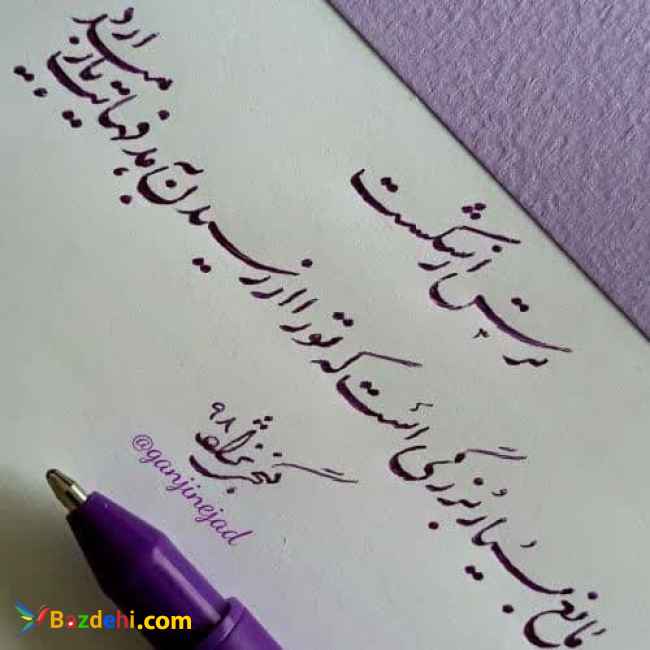 ترس از شکست
مانع بسیار بزرگی است که تو را از رسیدن به هدفهایت باز میدارد
گنجی نژاد ۹۸
@ganjinejad
Bazdehi.com